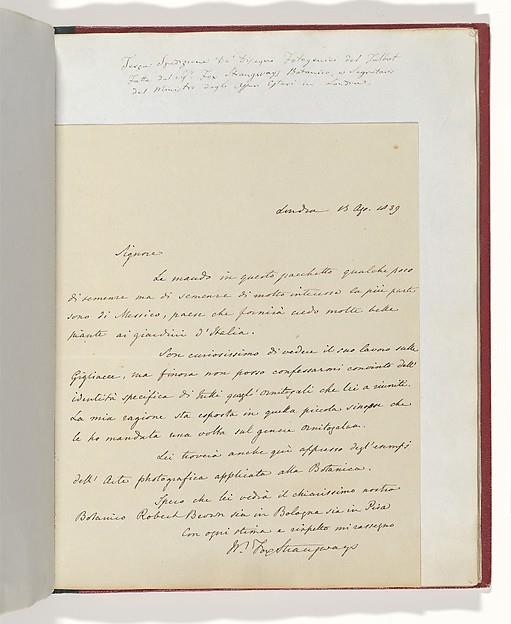 Terza Spedizione de' Disegni Fotogenici del Talbot
Fatta dal Sigr. Fox Strangways Botanico, e Segretario
del Ministro degli Affari Esteri in Londra.
Londra 13 Ago. 1839
Signore
Le mando in questo pacchetto qualche poco
di semenze ma di semenze di molto interesse la più parte
sono di Messico, paese che fornirà credo molte belle
piante ai giardini d'Italia.
Son curiosissimo di vedere il suo lavoro sulle
Gigliacee, ma finora non posso confessarmi convinto dell'
identità specifica di tutti quegl' ornitogali che lei a riunite.
La mia ragione sta esposta in quella piccola sinopse che
le ho mandata una volta sul genere ornitogalea.
Lei troverà anche qui appresso degl'esempj
dell' Arte photografica applicata alla Botanica.
Spero che lei vedrà il chiarissimo nostro
Botanico Robert Brown sia in Bologna sia in Pisa
Con ogni stima e rispetto mi rassegno
Wm. Fox Strangways